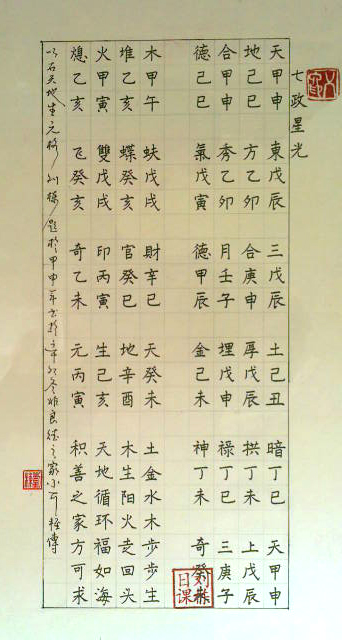 七政星光
天甲申 東戊辰 三戊辰 土己丑 暗丁巳 天甲申
地己巳 方乙卯 合庚申 厚戊辰 拱丁未 上戊辰
合甲申 秀乙卯 月壬子 埋戊申 祿丁巳 三庚子
德己巳 氣戊寅 德甲辰 金己未 神丁未 奇癸
木甲午 蚨戊戌 財辛巳 天癸未 土金水木步步生
堆乙亥 蝶癸亥 官癸巳 地辛酉 木生阳火走回头
火甲寅 雙戊戌 印丙寅 生己亥 天地循环福如海
熄乙亥 飞癸亥 奇乙未 元丙寅 积善之家方可求
天地生元 於甲申年 之家
日课